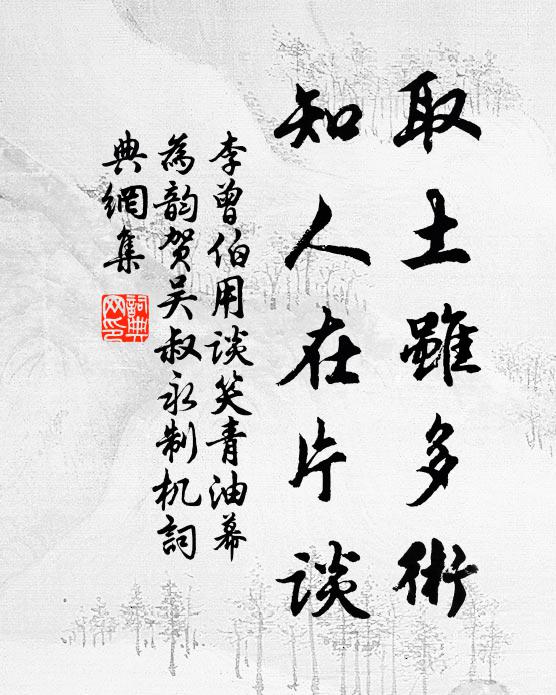 取土雖多術
知人在片谈
李曾伯用谈笑青油幕
為韵贺吴叔永制机詞
典網集
詞典網印